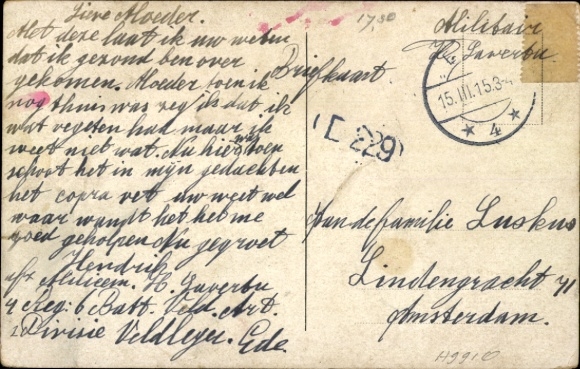 Lieve Moeder.
Met deze laat ik uw weten
dat ik gezond ben over
gekomen. Moeder toen ik
nog thuis was zeg ik dat ik
wat vegeten had maar ik
weet niet wat. Nu hier toen
schoot het in mijn gedachten
het copra vet uw weet wel
waar want het het me
goed geholpen Nu gegroet
Hendrik
afz Milicien. H. Laverbu
4 Reg: 6 Batt. Veld. Art.
1 Divisie Veldleger. Ede.
17,50
Militair
H. Laverbu.
Briefkaart
15.III.15.3-4
4
(E 229)
Aan de familie Luskus
Lindengracht 71
Amsterdam.
H9910